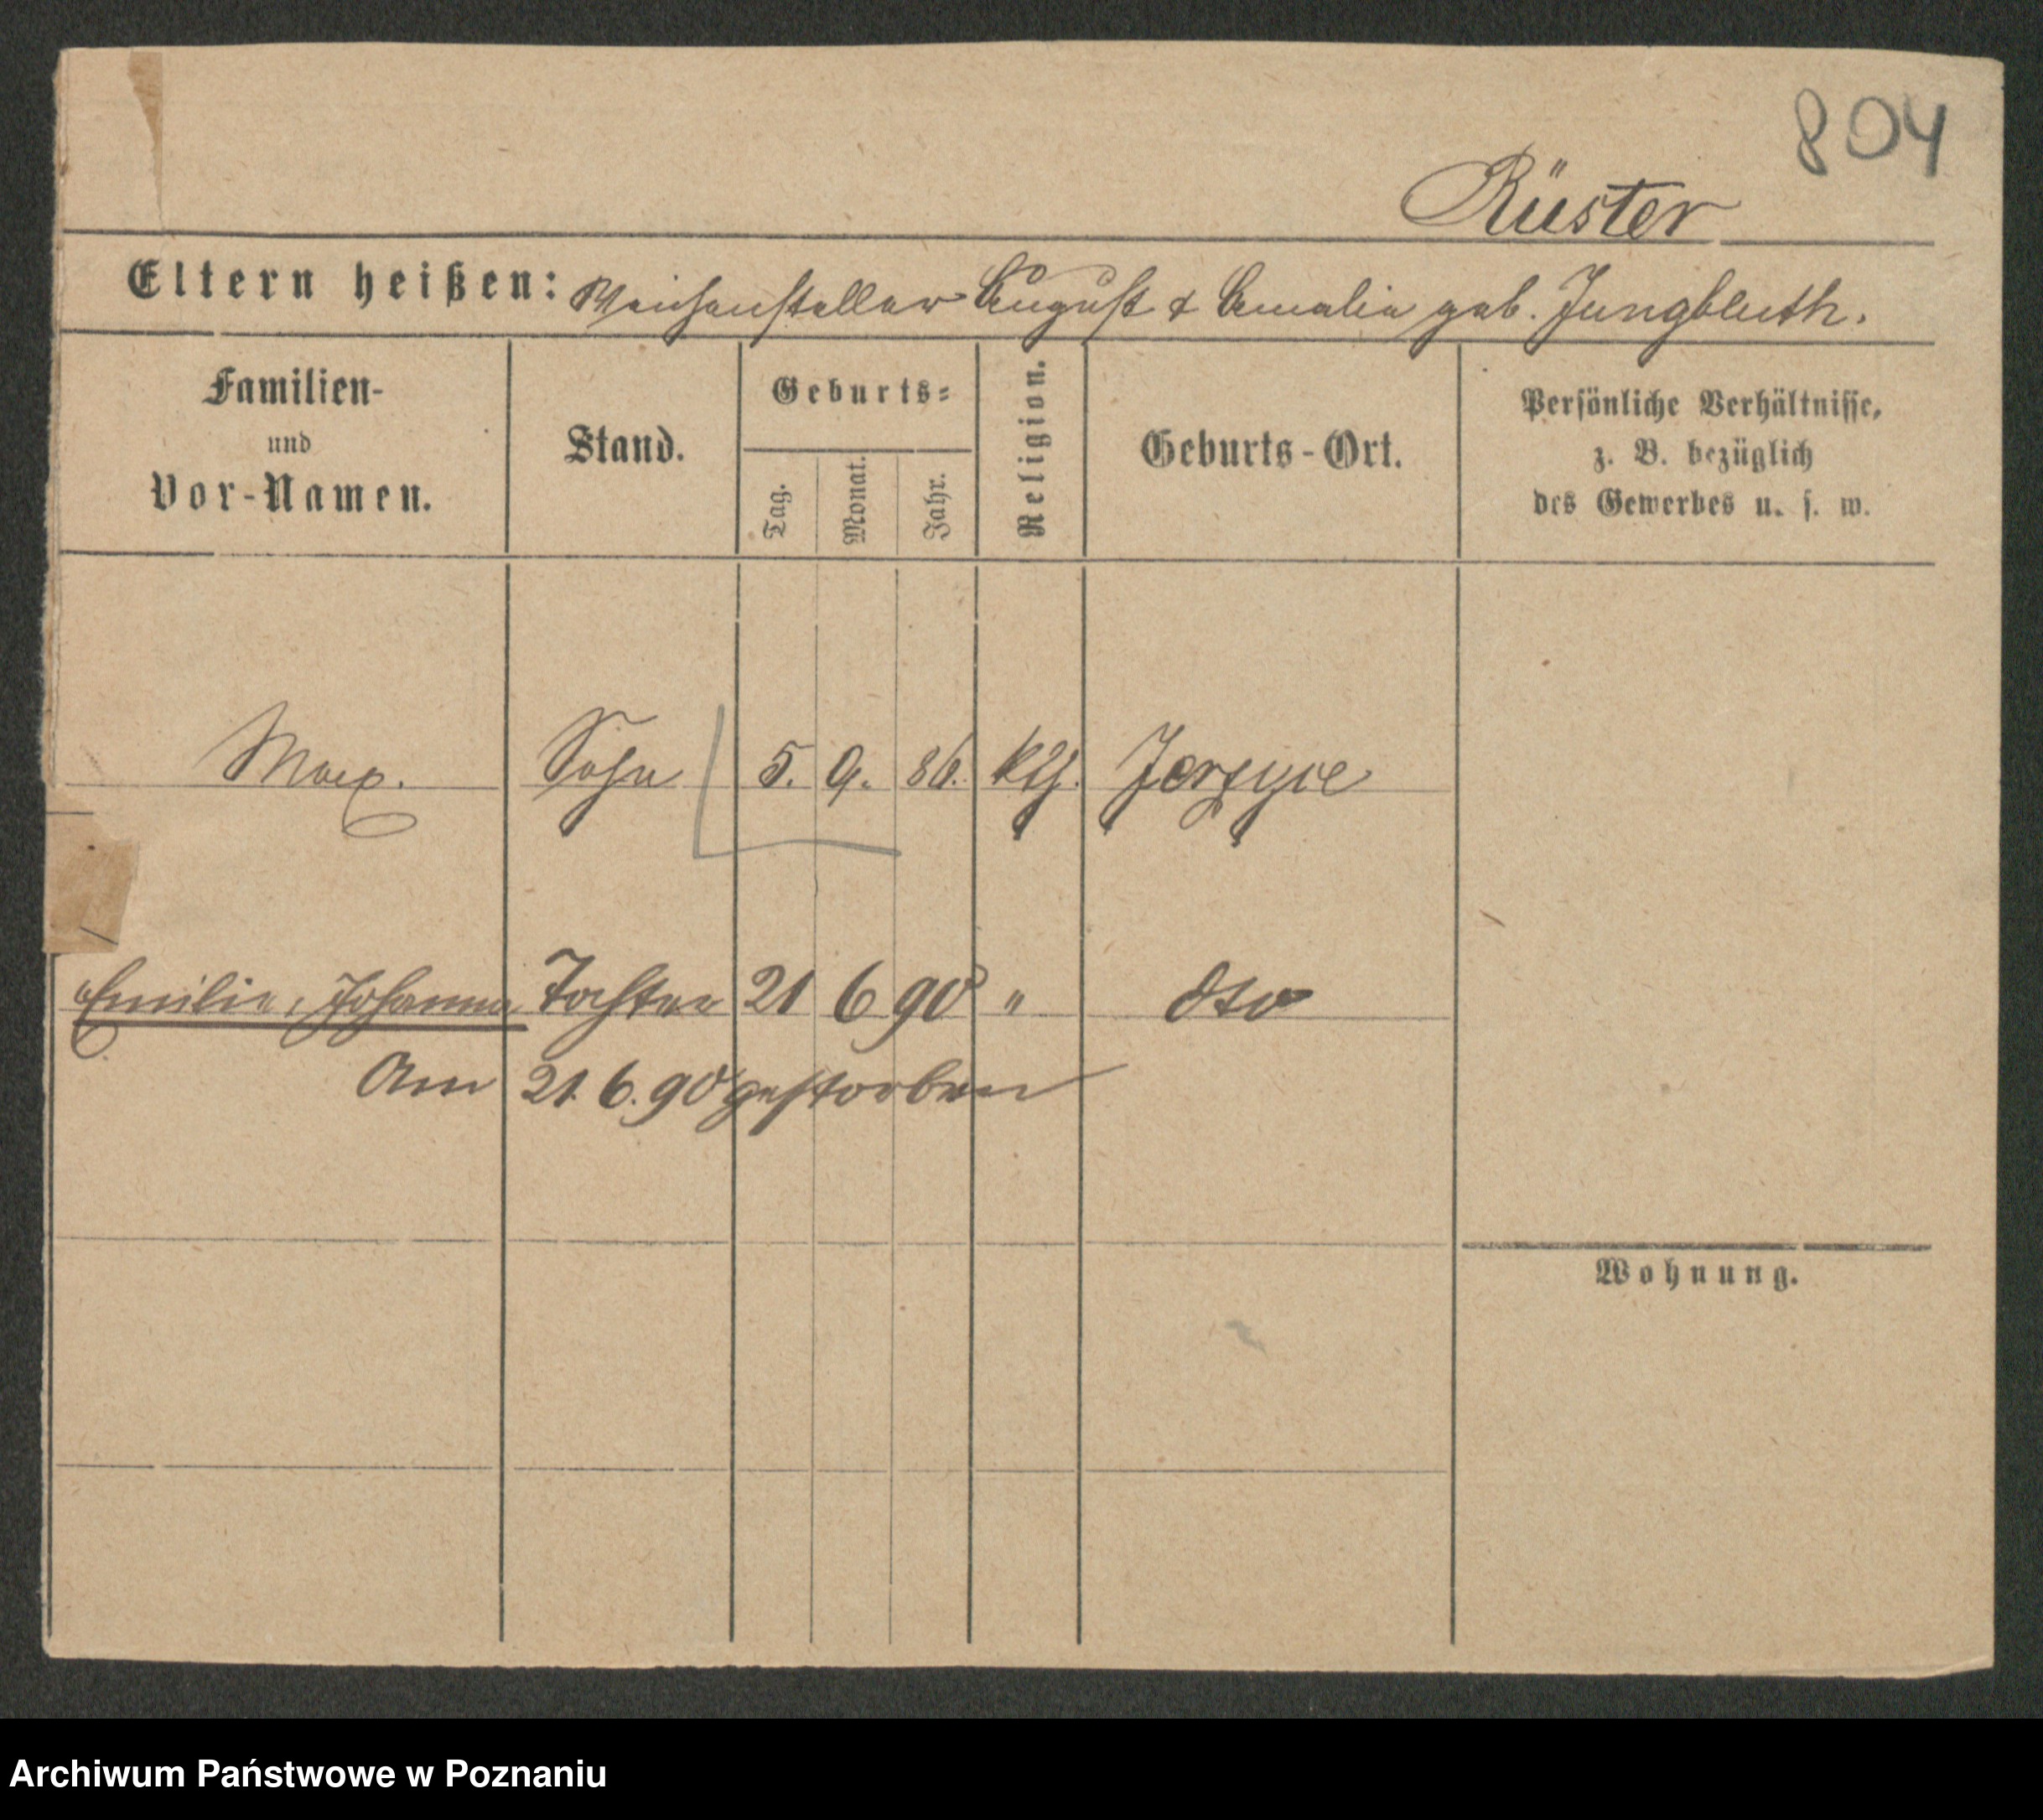 804
Rüster
Eltern heißen: Weichensteller August & Amalie geb. Jungbluth.
Familien-
und
Vor-Namen.
Stand.
Geburts-
Tag.
Monat.
Jahr.
Religion.
Geburts-Ort.
Persönliche Verhältnisse,
z. B. bezüglich
des Gewerbes u. s. w.
Max. Sohn 5. 9. 86. kth. Jerzyce
Emilie, Johanna Tochter 21 6 90 " dto
Am 21. 6. 90 gestorben
Wohnung.
Archiwum Państwowe w Poznaniu